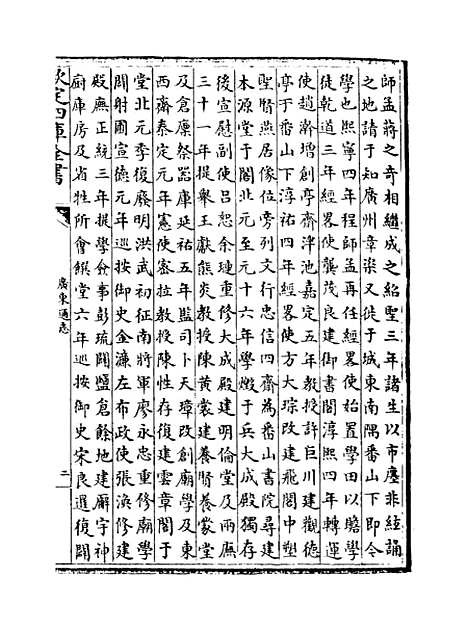 師孟蔣之奇相繼成之紹聖三年諸生以市廛非絃誦
之地請于知廣州章楶又徙于城東南隅番山下即今
學也熙寧四年程師孟再任經略使始置學田以贍學
徒乾道三年經略使龔茂良建御書閣淳熙四年轉運
使趙瀚增創亭齋泮池嘉定五年教授許巨川建觀德
亭于番山下淳祐四年經畧使方大琮改建飛閣中塑
聖賢燕居像位旁列文行忠信四齋為番山書院尋建
本源堂于閣北元至元十六年學燬于兵大成殿獨存
後宣慰副使吕恕余璉重修大成殿建明倫堂及兩廡
三十一年提舉王獻熊炎教授陳黄裳建養賢養蒙堂
及倉廩祭器庫延祐五年監司卜天璋改創廟學及東
西齋泰定元年憲使密拉教授陳性存復建雲章閣于
堂北元季復廢明洪武初征南將軍廖永忠重修廟學
闢射圃宣德元年巡按御史金濂左布政使張渙修建
殿廡正統三年提學僉事彭琉闢鹽倉餘地建廨宇神
厨庫房及省牲所會饌堂六年巡按御史宋良選復闢
欽定四庫全書
廣東通志
二